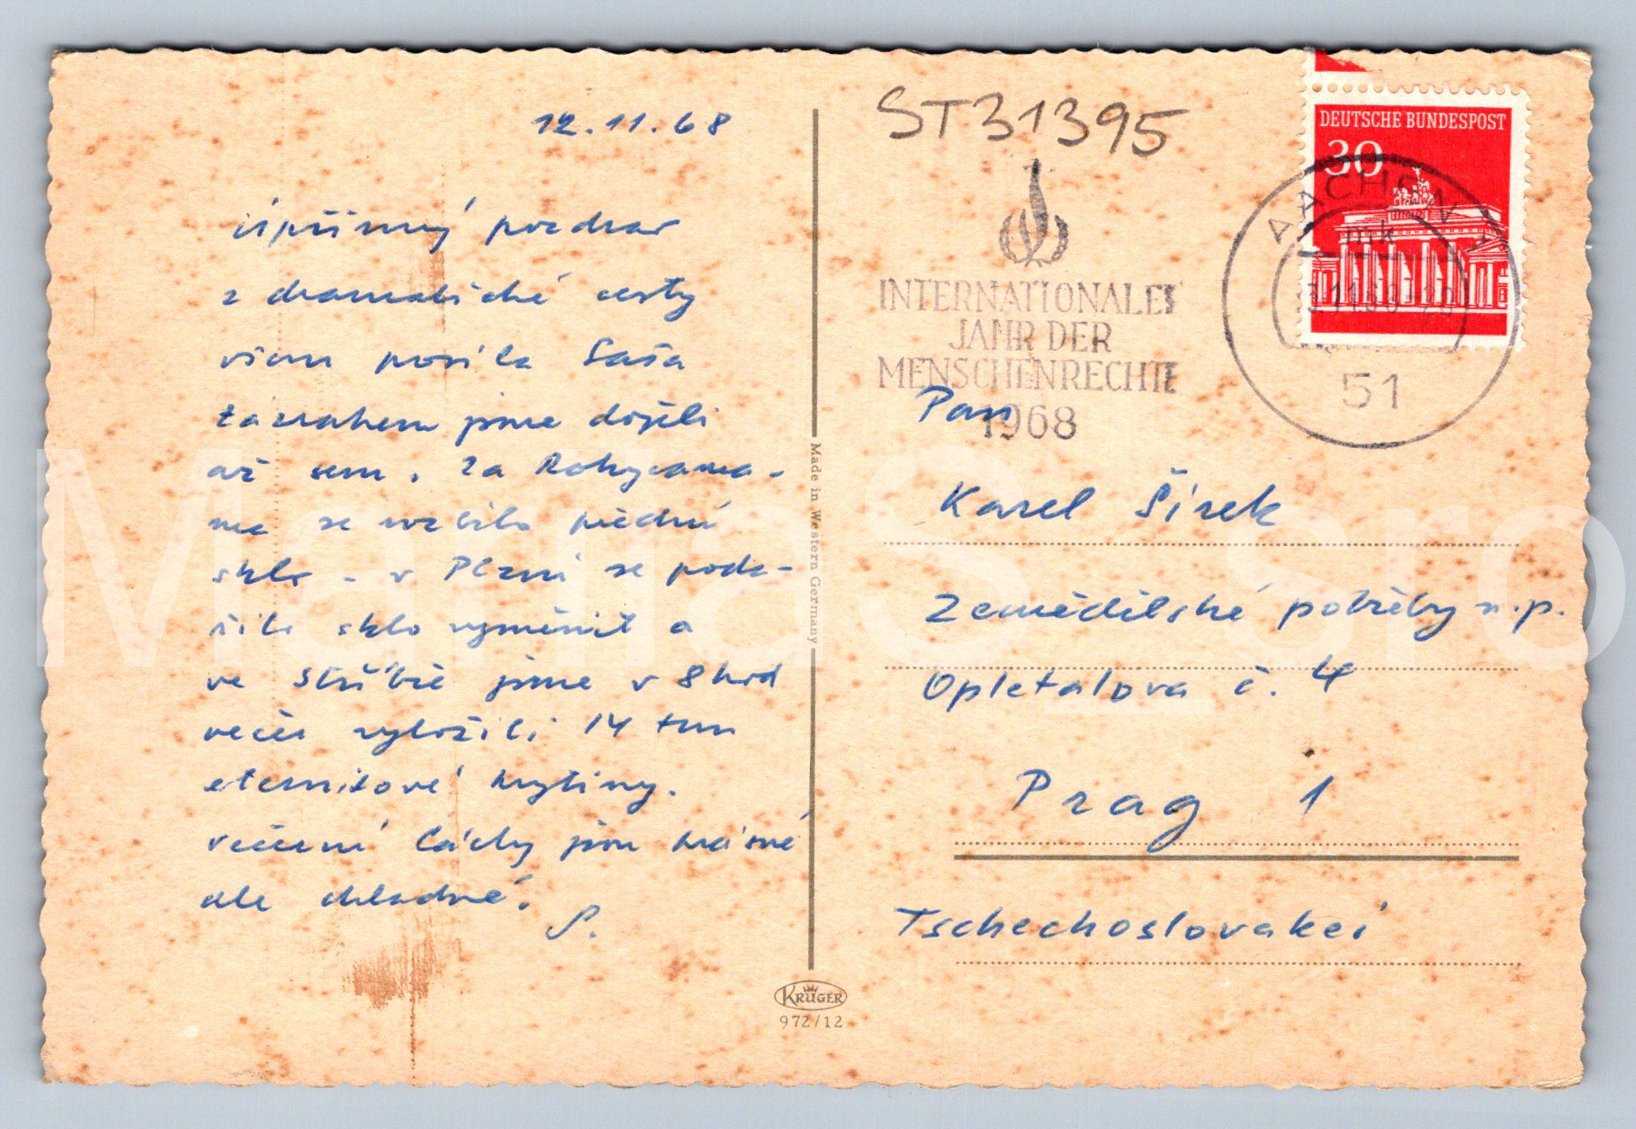 12.11.68
Upřímný pozdrav
z dramatické cesty
všem posílá Saša
Zázrakem jsme dojeli
až sem. Za Rokycana-
ma se rozbilo přední
sklo - v Plzni se poda-
řilo sklo vyměnit a
ve Stříbře jsme v 8 hod
večer vyložili 14 tun
eternitové krytiny.
Večerní Cáchy jsou krásné
ale chladné.
S.
Made in Western Germany
KRÜGER
972/12
ST31395
DEUTSCHE BUNDESPOST
30
AACHEN 1
mk
51
INTERNATIONALES
JAHR DER
MENSCHENRECHTE
1968
Pan
Karel Šírek
Zemědělské potřeby n.p.
Opletalova č. 4
Prag 1
Tschechoslovakei